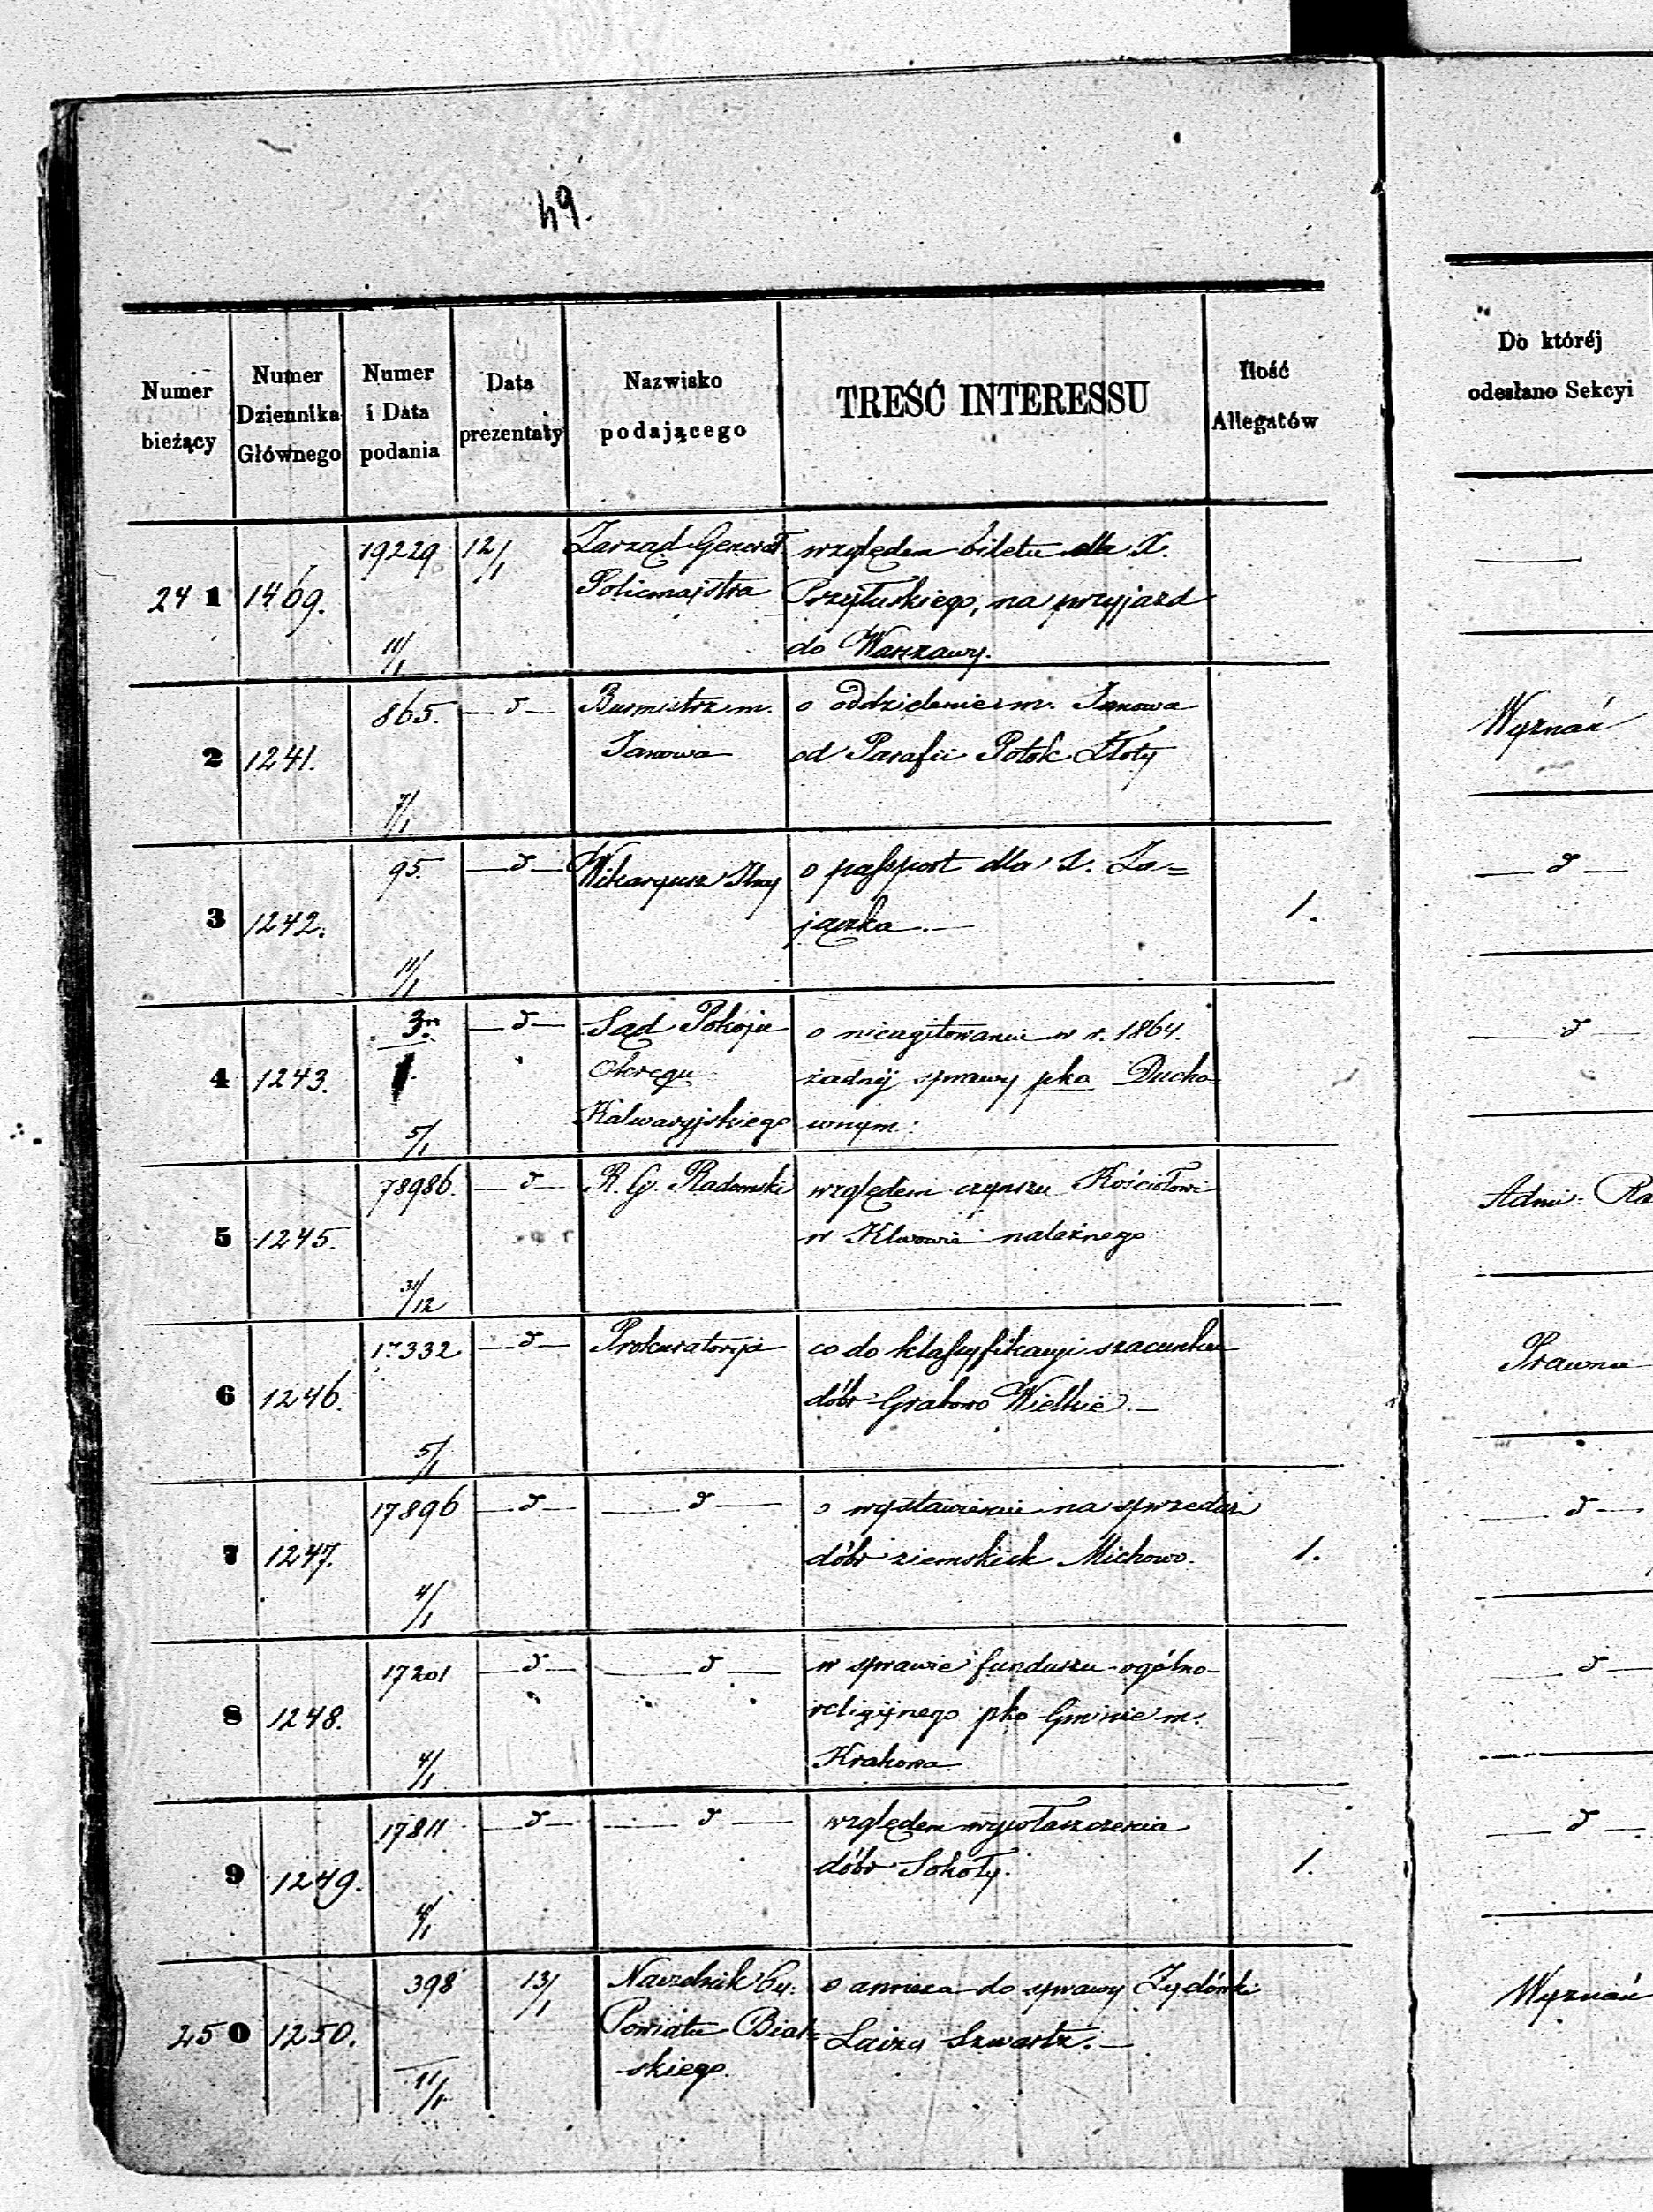 49.
Numer bieżący
Numer Dziennika Głównego
Numer i Data podania
Data prezentaty
Nazwisko podającego
TREŚĆ INTERESSU
Ilość Allegatów
Do któréj odesłano Sekcyi
241 1469. 19229 11/1 12/1 Zarząd Generał względem biletu dla X.
Policmajstra Przyłuskiego, na przyjazd
do Warszawy.
2 1241. 865. 7/1 — d — Burmistrz m. o oddzielenie m. Janowa Wyznań
Janowa od Parafii Potok Złoty
3 1242. 95. 11/1 — d — Wikaryusz o passport dla X. Za= 1. — d —
jączka. —
4 1243. 5/1 — d — Sąd Pokoju o nieagitowaniu w r. 1864. — d —
Okręgu żadnéj sprawy pko Ducho=
Kalwaryjskiego wnym:
5 1245. 78986. 31/12 — d — R. G. Radomski względem czynszu Kościołowi Admi: Ra
w Klwowie należnego
6 1246. 17332 5/1 — d — Prokuratorya co do klassyfikacyi szacunku Prawna
dóbr Grabowo Wielkie. —
7 1247. 17896 4/1 — d — — d — o wystawienie na sprzedaż — d —
dóbr ziemskich Michowo. 1.
8 1248. 17201 4/1 — d — — d — w sprawie funduszu ogólno- — d —
religijnego pko Gminie m.
Krakowa
9 1249. 17811 4/1 — d — — d — względem wywłaszczenia — d —
dóbr Sokoły. 1.
250 1250. 398 11/1 13/1 Naczelnik Cy: o do sprawy Żydówki Wyznań
Powiatu Bial=
skiego. Szwartz. —